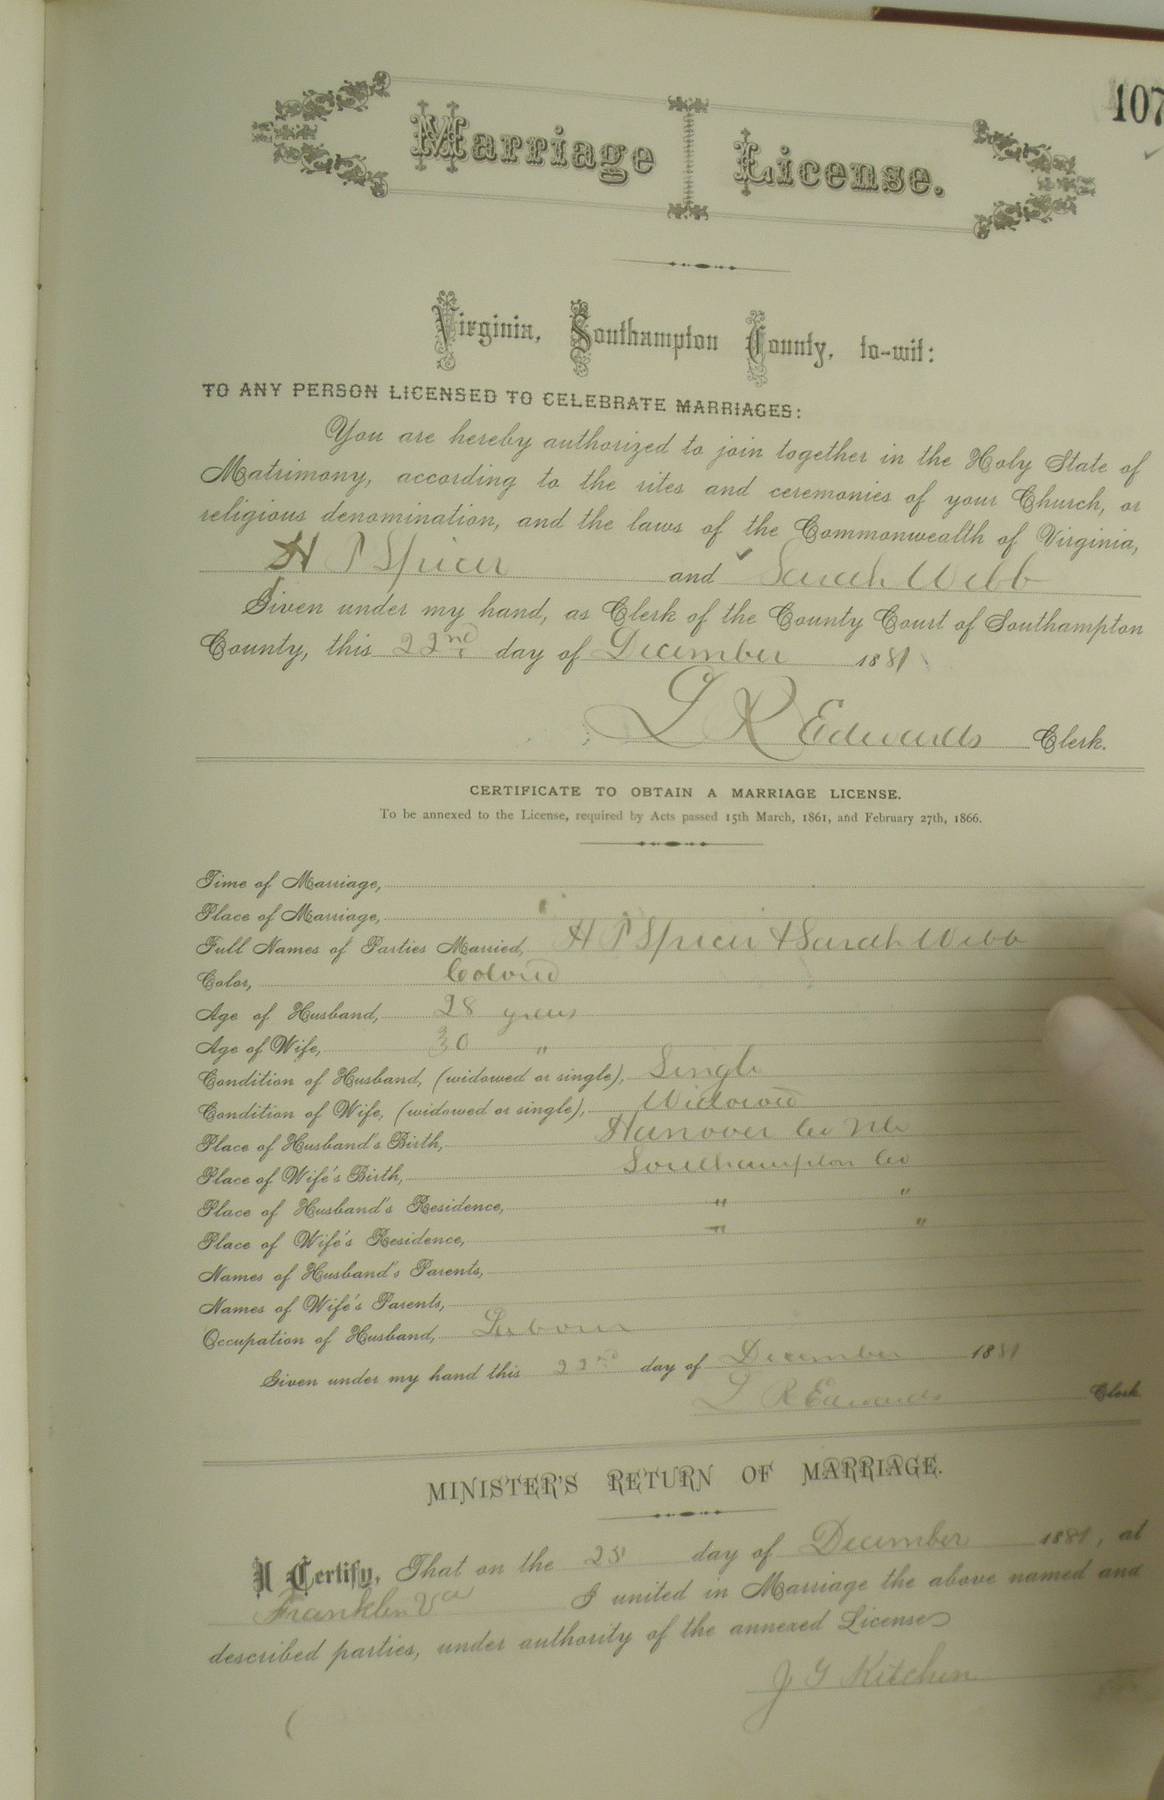 107
Marriage License.
Virginia, Southampton County, to-wit:
TO ANY PERSON LICENSED TO CELEBRATE MARRIAGES:
You are hereby authorized to join together in the Holy State of
Matrimony, according to the rites and ceremonies of your Church, or
religious denomination, and the laws of the Commonwealth of Virginia,
H P Spicer and Sarah Webb
Given under my hand, as Clerk of the County Court of Southampton
County, this 22nd day of December 1881
L R Edwards Clerk.
CERTIFICATE TO OBTAIN A MARRIAGE LICENSE.
To be annexed to the License, required by Acts passed 15th March, 1861, and February 27th, 1866.
Time of Marriage,
Place of Marriage,
Full Names of Parties Married, H P Spicer & Sarah Webb
Color, Colored
Age of Husband, 28 years
Age of Wife, 30 "
Condition of Husband, (widowed or single), Single
Condition of Wife, (widowed or single), Widowed
Place of Husband's Birth, Hanover Co NC
Place of Wife's Birth, Southampton Co
Place of Husband's Residence, " "
Place of Wife's Residence, " "
Names of Husband's Parents,
Names of Wife's Parents,
Occupation of Husband, Laborer
Given under my hand this 22nd day of December 1881
L R Edwards Clerk.
MINISTER'S RETURN OF MARRIAGE.
I Certify, That on the day of December 1881, at
Franklin Va I united in Marriage the above named and
described parties, under authority of the annexed License
J G Kitchen